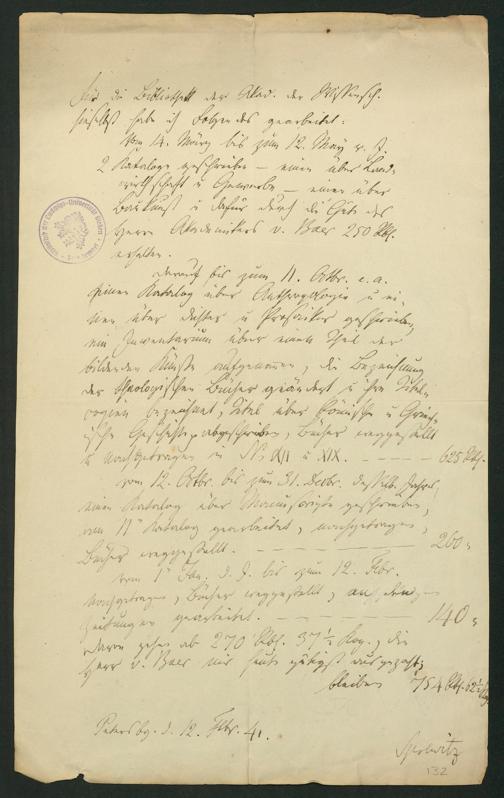 Für die Bibliothek der Akad. der Wissensch.
hieselbst habe ich Folgendes gearbeitet:
Vom 14. März bis zum 12. May v. J.
2 Kataloge geschrieben – einen über Land-
wirthschaft u Gewerbe – einen über
Baukunst u dafür durch die Güte des
Herrn Akademikers v. Baer 250 Rbl.
erhalten.
Darauf bis zum 11. Octbr. e. a.
einen Katalog über Anthropologie u ei-
nen über Dichter u Prosaiker geschrieben,
ein Inventarium über einen Theil der
bildenden Künste aufgenommen, die Bezeichnung
der theologischen Bücher geändert u ihre
bezeichnet, Titel über Römische u Griech-
ische Geschichte abgeschrieben, Bücher weggestellt
u nachgetragen in XII u XIX. – – – – 625 Rbl.
vom 12. Octbr. bis zum 31. Decbr. desselb. Jahres
einen Katalog über Manuscripte geschrieben,
am Katalog gearbeitet, nachgetragen,
Bücher weggestellt. – – – – – – 260 "
vom 1 Jan. d. J. bis zum 12. Febr.
nachgetragen, Bücher weggestellt, an den
Zeitungen gearbeitet. – – – – – 140 "
Davon gehen ab 270 Rbl. 37 1/2 Kop., die
Herr v. Baer mir heute gütigst ausgezahlt
bleiben 754 Rbl. 62 1/2 Kop
Petersbg. d. 12. Febr. 41.
132